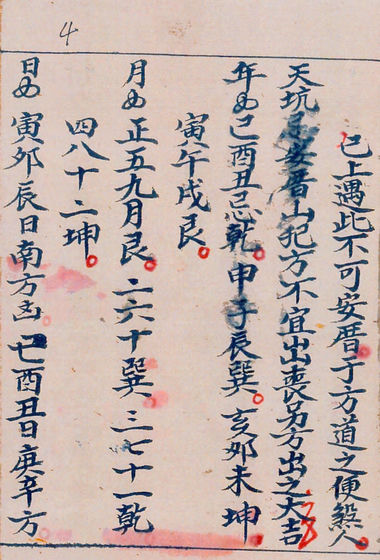 4
已上遇此不可安厝于方道之便煞人
天坑忌安厝山犯方不宜出喪另方出之大吉
年如巳酉丑忌乾申子辰巽亥卯未坤
寅午戌艮
月如正五九月艮二六十巽三七十一乾
四八十二坤
日如寅卯辰日南方凶巳酉丑日庚辛方